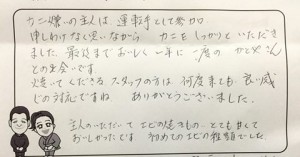 カニ嫌いの主人は 運転手として参加
申しわけない思いながら カニをしっかりといただき
ました。最後までおいしく 一年に一度の かどやさん
との出会いです。
焼いてくださる スタッフの方は 何度来ても 良い感
じの対応ですね ありがとうございました。
主人のいただいて エビの焼きもの とても甘くて
おいしかったです 初めてのエビの種類でした